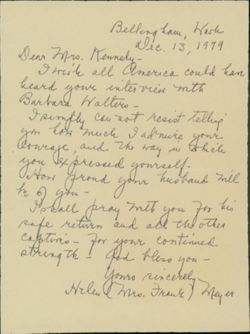 Bellingham, Wash
Dec. 13, 1979
Dear Mrs. Kennedy-
I wish all America could have
heard your interview with
Barbara Walters-
I simply can not resist telling
you how much I admire your
courage, and the way in which
you expressed yourself.
How proud your husband will
be of you-
I shall pray with you for his
safe return and all the other
captives- for your continued
strength- God bless you-
Yours sincerely
Helen (Mrs. Frank) Meyer